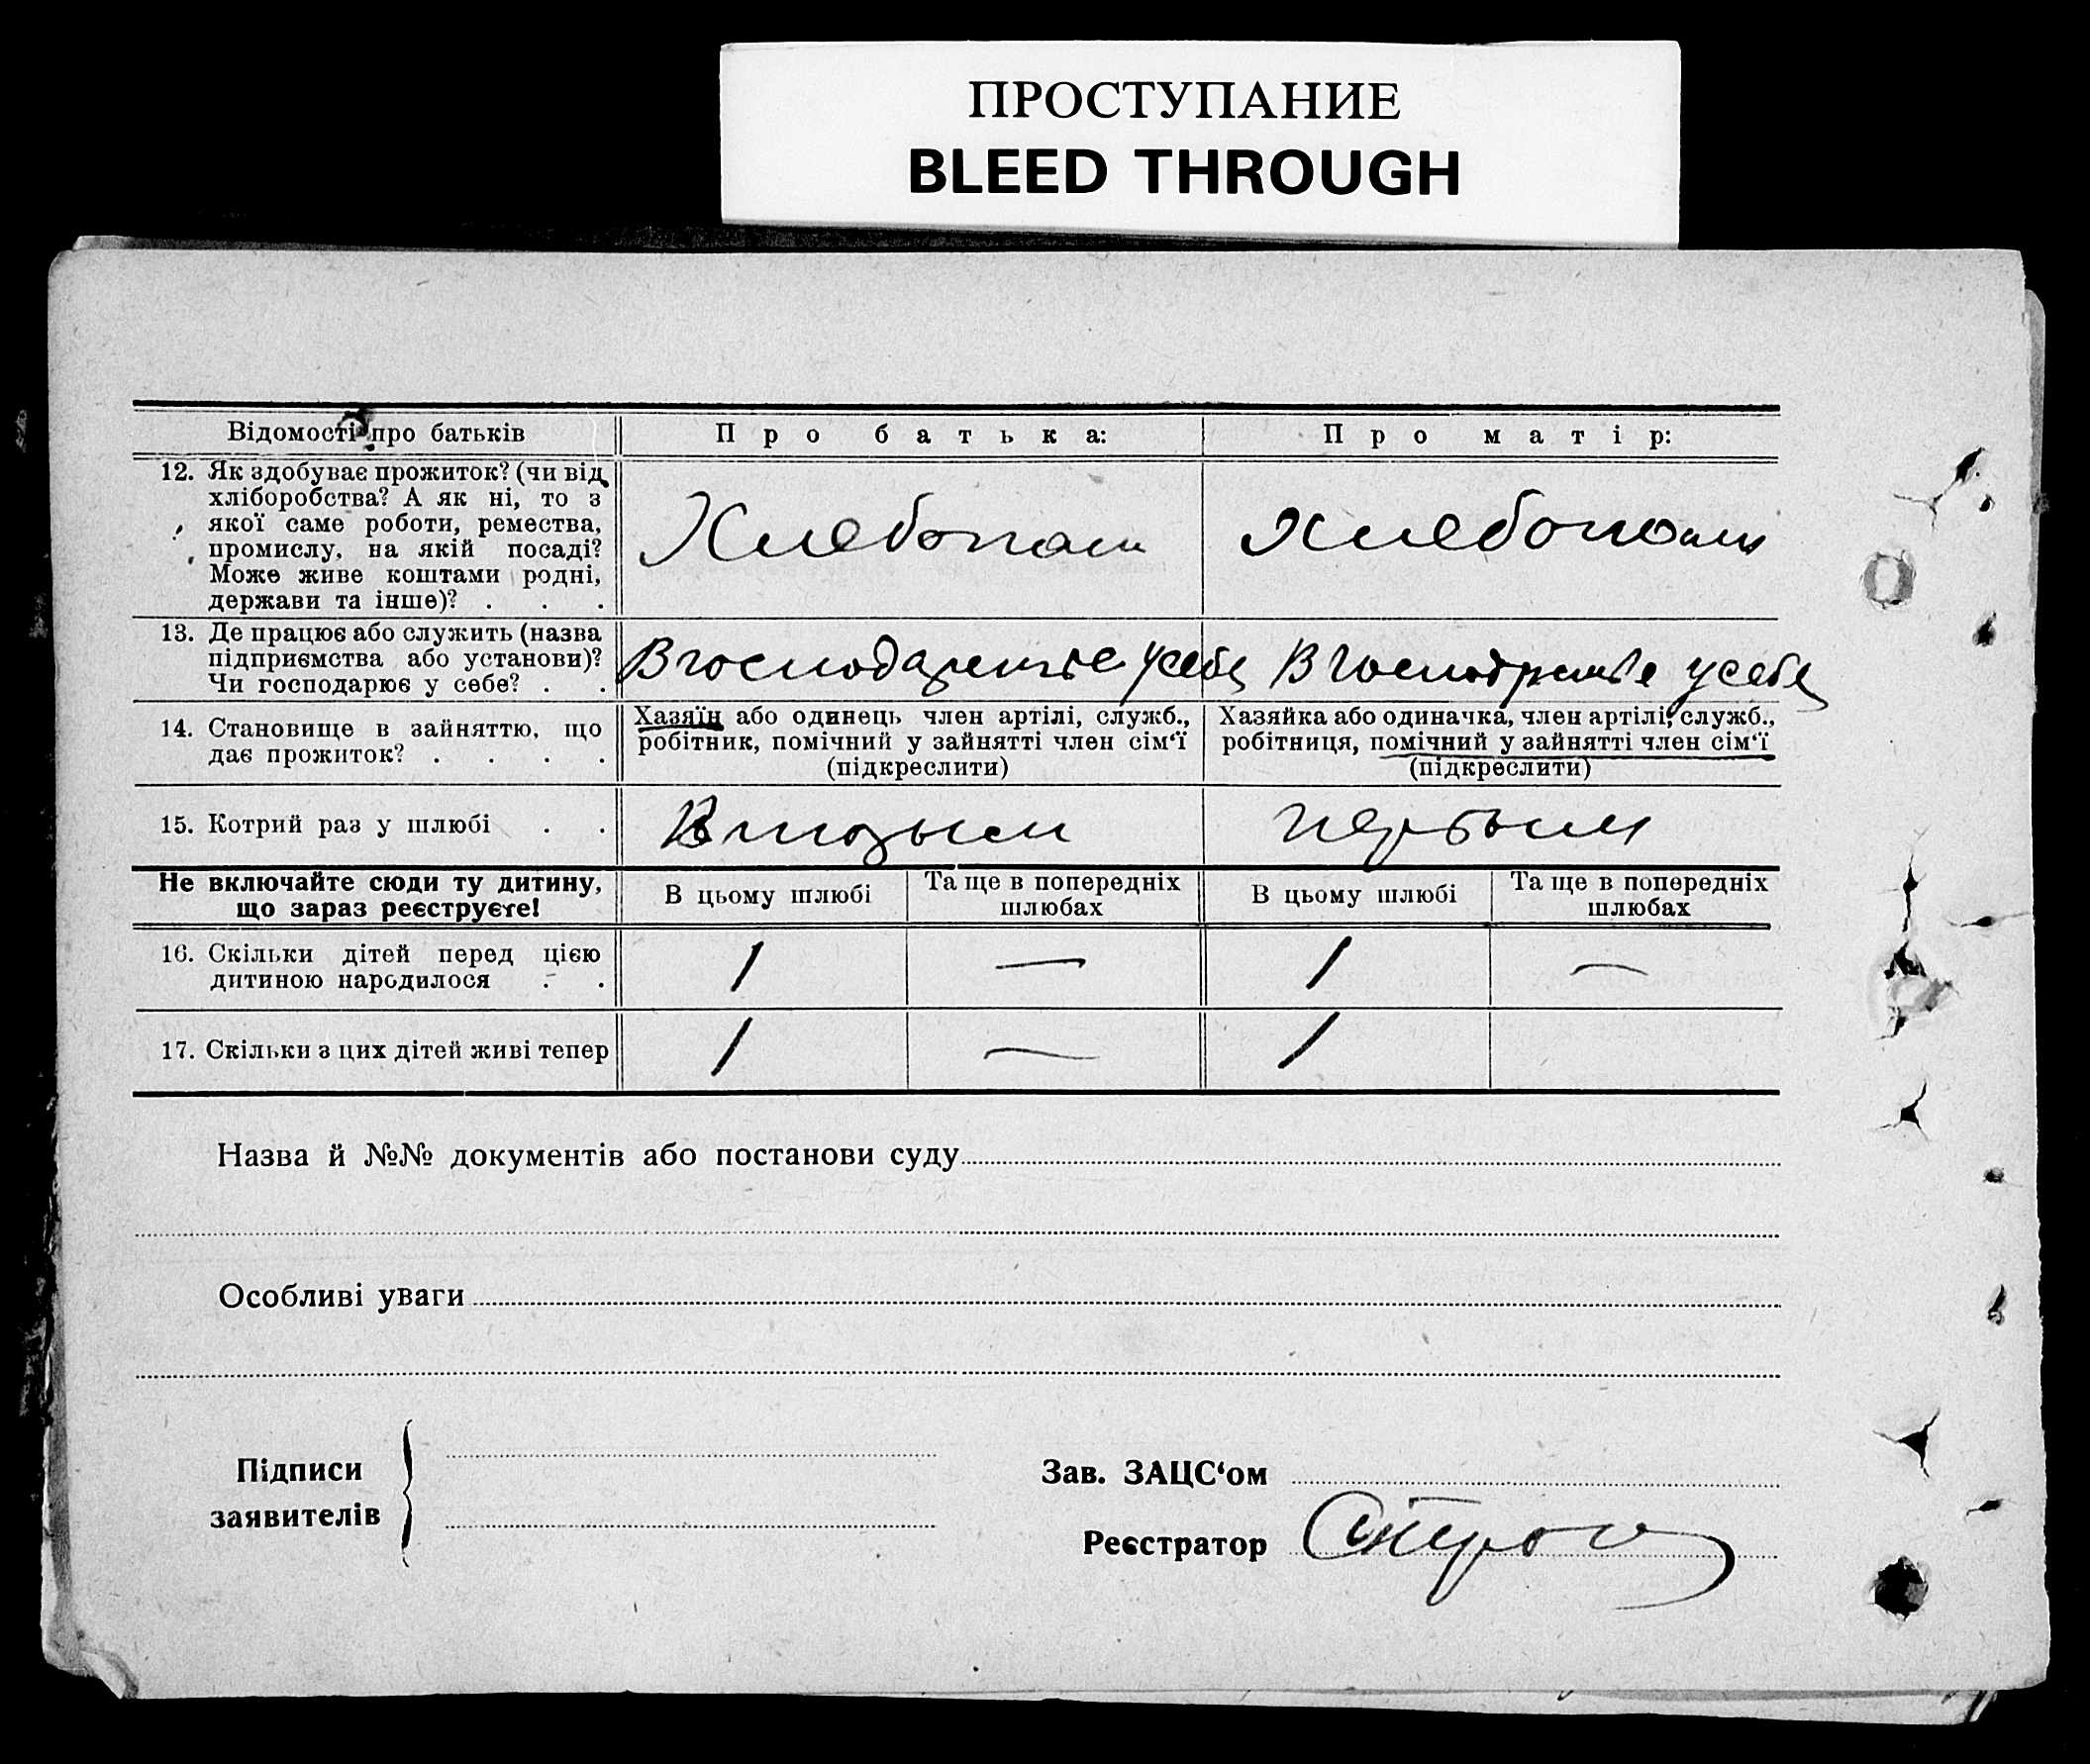 ПРОСТУПАНИЕ
BLEED THROUGH
Відомості про батьків
Про батька:
Про матір:
12. Як здобуває прожиток? (чи від
хліборобства? А як ні, то з
якої саме роботи, ремества,
промислу, на якій посаді?
Може живе коштами родні,
держави та інше)? . . .
Хлебопаш
Хлебопаш
13. Де працює або служить (назва
підприємства або установи)?
Чи господарює у себе? . .
В господарстве у себе
В господрстве у себе
14. Становище в зайняттю, що
дає прожиток? . . . .
Хазяїн або одинець член артілі, служб.,
робітник, помічний у зайнятті член сім‘ї
(підкреслити)
Хазяйка або одиначка, член артілі, служб.,
робітниця, помічний у зайнятті член сім‘ї
(підкреслити)
15. Котрий раз у шлюбі . .
Вторым
первым
Не включайте сюди ту дитину,
що зараз реєструєте!
В цьому шлюбі
Та ще в попередніх
шлюбах
В цьому шлюбі
Та ще в попередніх
шлюбах
16. Скільки дітей перед цією
дитиною народилося . .
1 — 1 —
17. Скільки з цих дітей живі тепер
1 — 1
Назва й №№ документів або постанови суду
Особливі уваги
Підписи
заявителів
Зав. ЗАЦС‘ом
Реєстратор